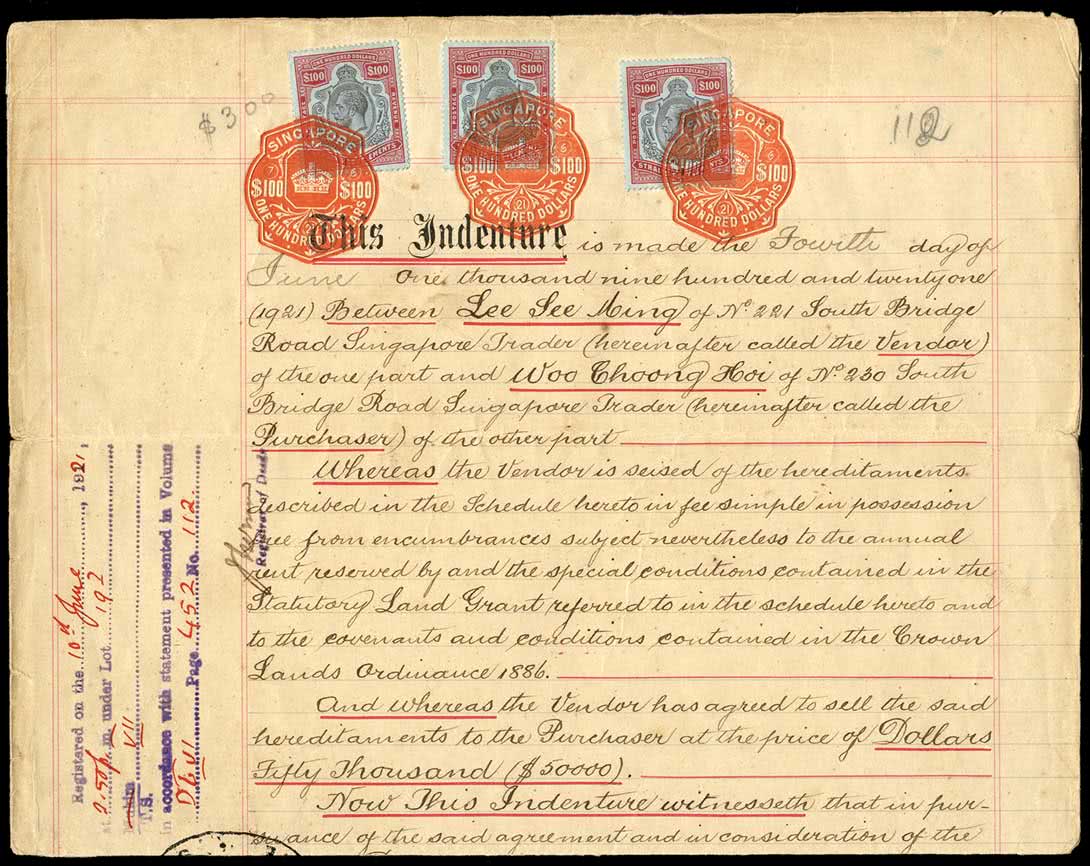 $300
112
ONE HUNDRED DOLLARS
$100 $100
POSTAGE REVENUE
ONE HUNDRED DOLLARS
$100 $100
POSTAGE
ONE HUNDRED DOLLARS
$100 $100
POSTAGE
SINGAPORE
$100 $100
ONE HUNDRED DOLLARS
SINGAPORE
$100 $100
21
ONE HUNDRED DOLLARS
SINGAPORE
$100 $100
21
ONE HUNDRED DOLLARS
This Indenture is made the Fourth day of
June One thousand nine hundred and twenty one
(1921) Between Lee See Ming of No. 221 South Bridge
Road Singapore Trader (hereinafter called the Vendor)
of the one part and Woo Choong Hoi of No. 230 South
Bridge Road Singapore Trader (hereinafter called the
Purchaser) of the other part
Whereas the Vendor is seised of the hereditaments
described in the Schedule hereto in fee simple in possession
free from encumbrances subject nevertheless to the annual
rent reserved by and the special conditions contained in the
Statutory Land Grant referred to in the schedule hereto and
to the covenants and conditions contained in the Crown
Lands Ordinance 1886.
And whereas the Vendor has agreed to sell the said
hereditaments to the Purchaser at the price of Dollars
Fifty Thousand ($50000).
Now This Indenture witnesseth that in pur-
suance of the said agreement and in consideration of the
Registered on the 10th June, 1921,
at p.m under Lot 192
Mukim VII
T.S.
in accordance with statement presented in Volume
Page 452 No. 112
Registrar of Deeds